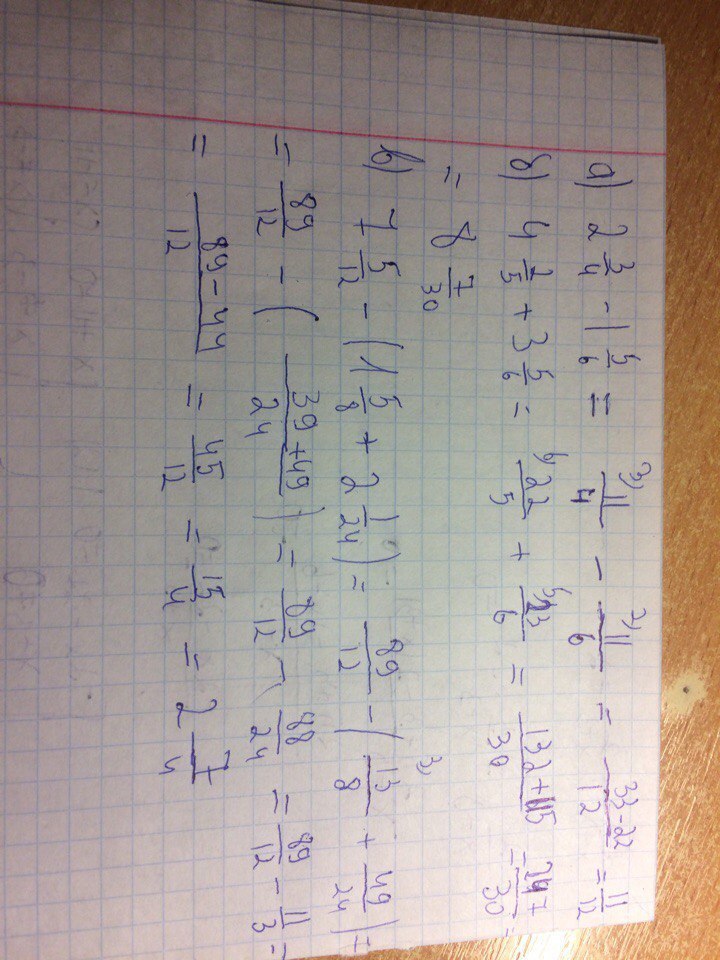 а) 2 3/4 - 1 5/6 = 3) 11/4 - 2) 11/6 = 33-22/12 = 11/12
б) 4 2/5 + 3 5/6 = 6) 22/5 + 5) 23/6 = 132+115/30 = 247/30 =
= 8 7/30
в) 7 5/12 - (1 5/8 + 2 1/24) = 89/12 - ( 3) 13/8 + 49/24 ) =
= 89/12 - ( 39+49/24 ) = 89/12 - 88/24 = 89/12 - 11/3 =
= 89-44/12 = 45/12 = 15/4 = 2 7/4